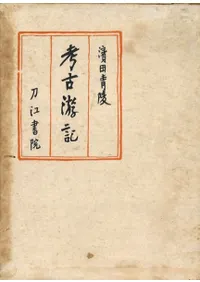 濱田青陵
考古游記
刀江書院